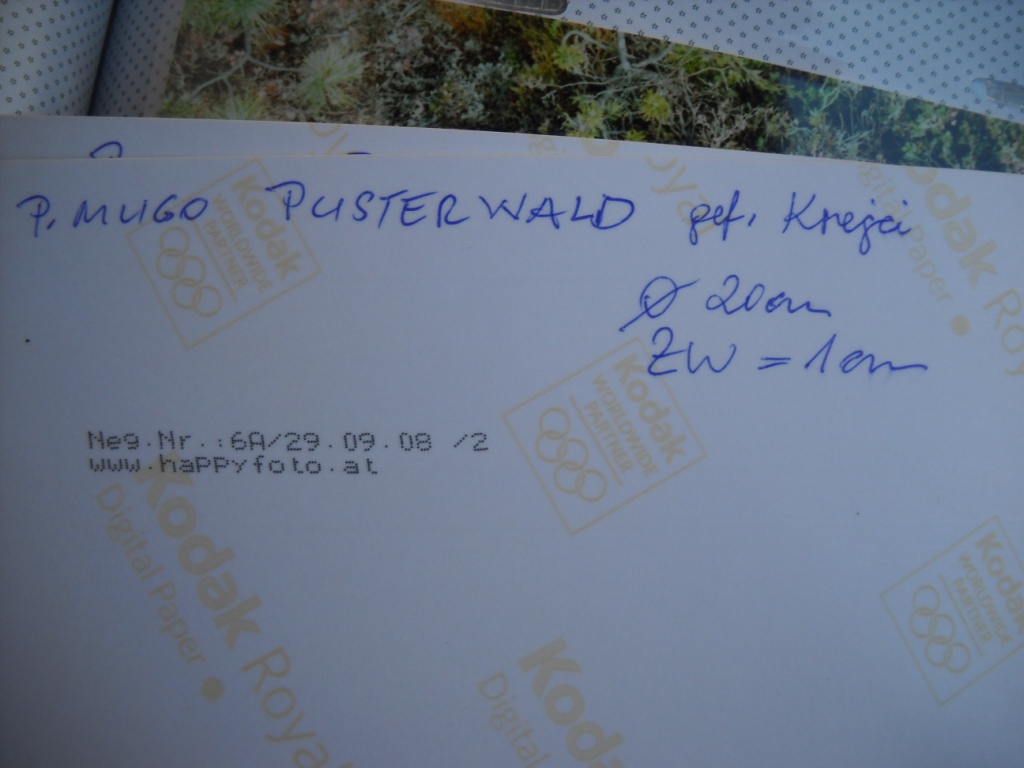 P. MUGO PUSTERWALD gef. Krejci
Ø 20cm
ZW = 1cm
Neg.Nr.:6A/29.09.08 /2
www.happyfoto.at
Kodak
WORLDWIDE
PARTNER
Kodak Royal
Digital Paper
Kodak
WORLDWIDE
PARTNER
Kodak Royal
Digital Paper
Kodak
WORLDWIDE
PARTNER
Kodak
Digital
Royal